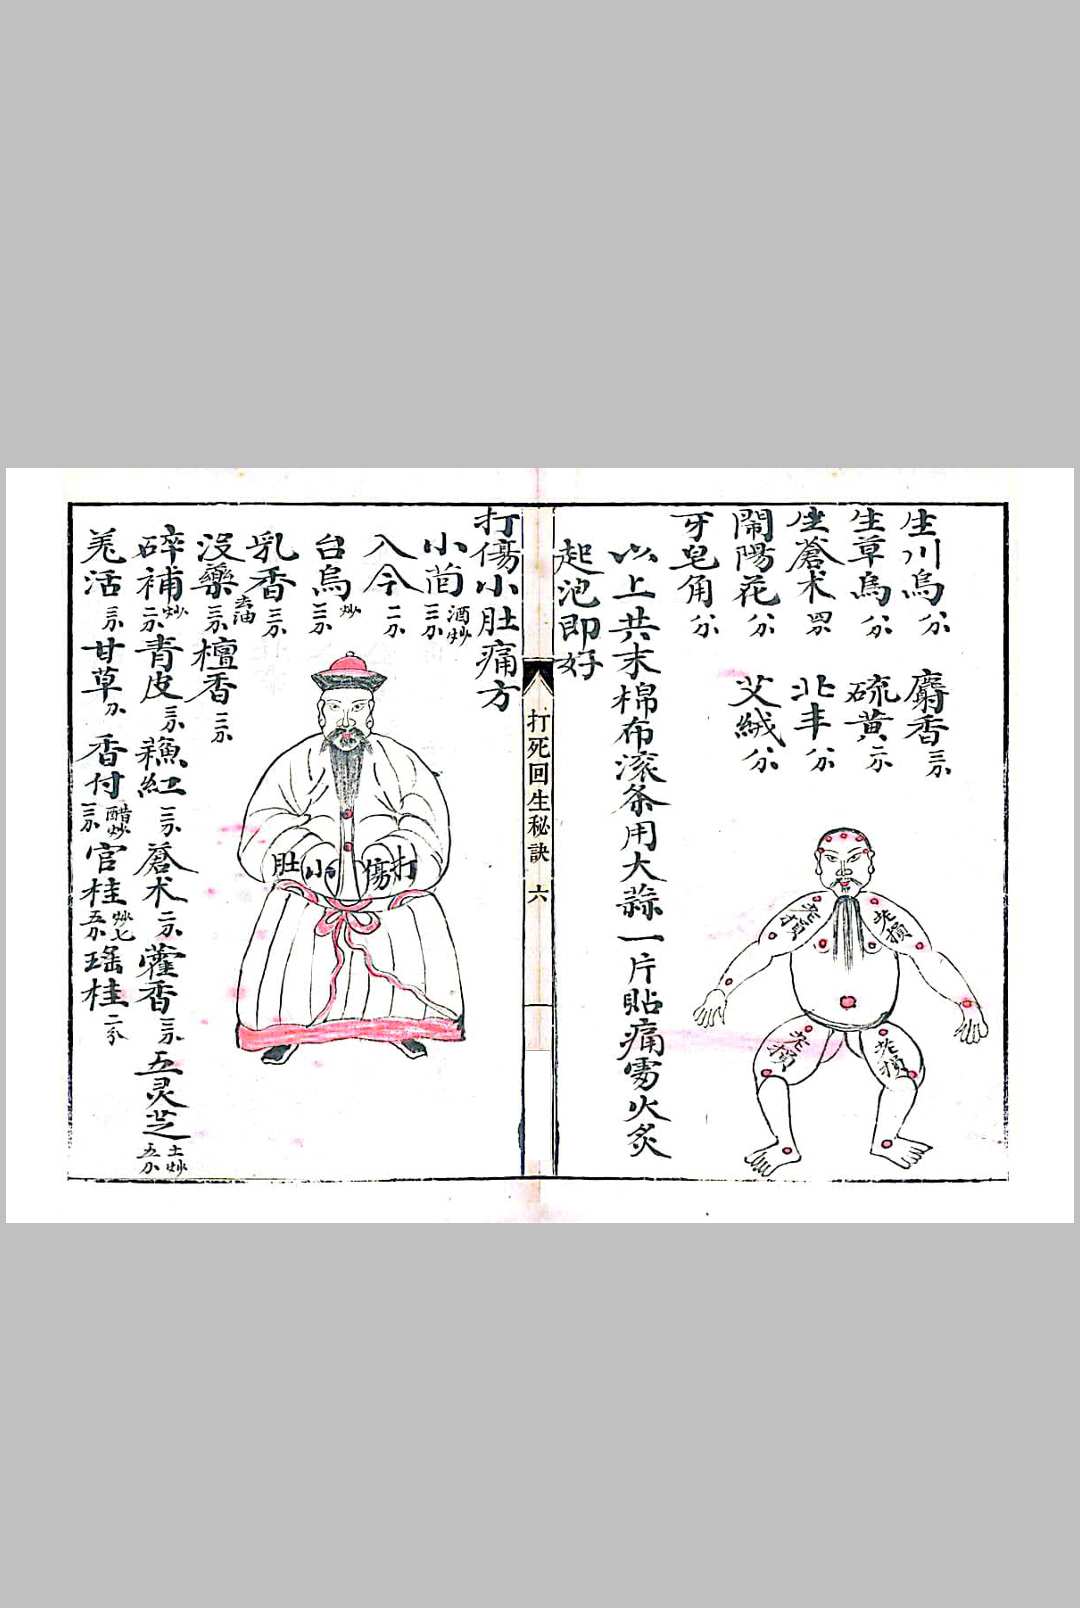 生川烏 分 麝香 三分
生草烏 分 硫黃 二分
生蒼术 四分 北丰 分
鬧陽花 分 艾絨 分
牙皂角 分
以上共末棉布滚条用大蒜一片貼痛處火炙
起泡即好
老損
老損
老損
老損
打死回生秘訣 六
打傷小肚痛方
小茴 酒炒 三分
入今 二分
台烏 炒 三分
乳香 三分
没藥 去油 三分 檀香 三分
碎補 炒 二分 青皮 三分 紅 三分 蒼术 二分 藿香 三分 五灵芝 土炒 五分
羌活 三分 甘草 分 香付 醋炒 三分 官桂 五分 瑶桂 二分
打傷小肚